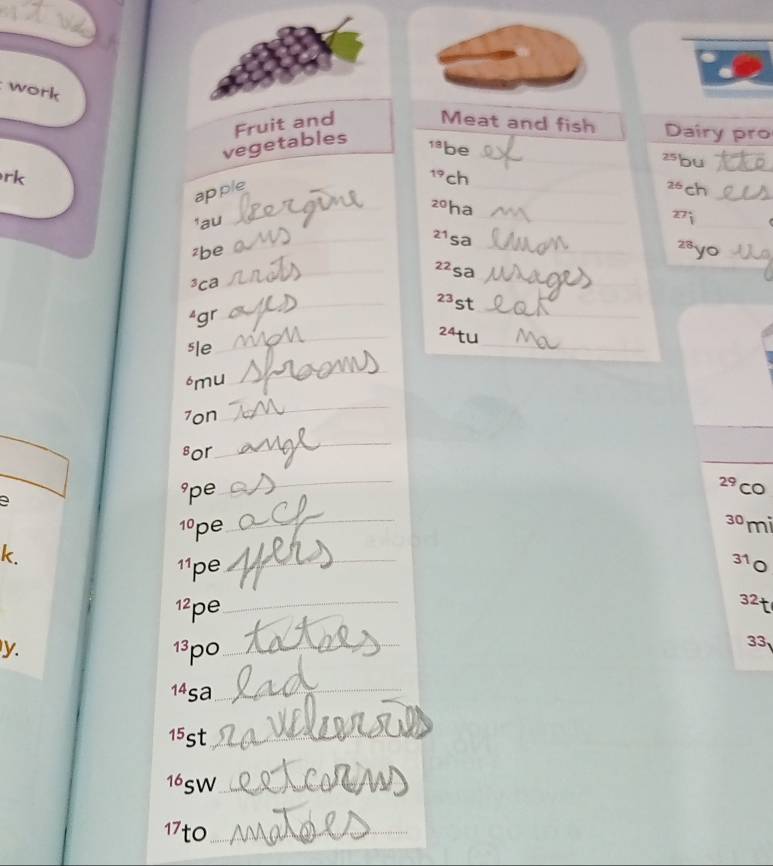 work
rk
e
k.
y.
Fruit and
vegetables
apple
1au bergine
2be ans
3ca rrots
4gr apes
5le mon
6mu shrooms
7on ion
8or ange
9pe as
10pe ach
11pe ppers
12pe
13po tatoes
14sa lad
15st
16sw eetcorns
17to matoes
Meat and fish
18be ef
19ch
20ha m
21sa lmon
22sa usages
23st eak
24tu na
Dairy pro
25bu tte
26ch ees
27i
28yo ug
29co
30mi
31o
32t
33